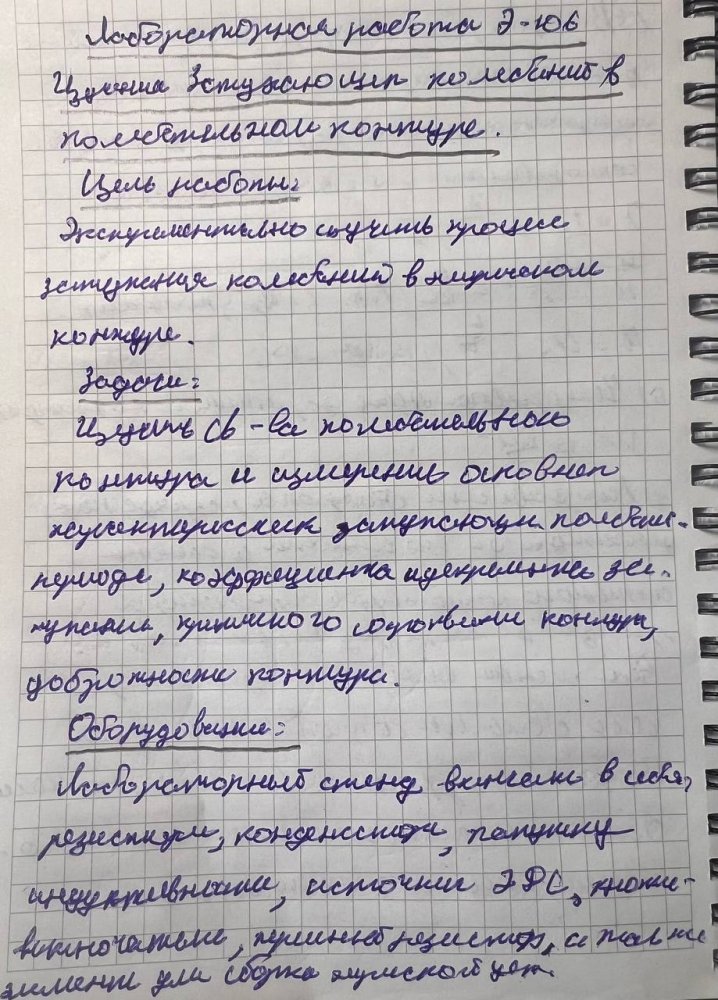 Лабораторная работа Э-10б
Изучение Затухающих колебаний в
колебательном контуре.
Цель работы:
Экспериментально изучить процесс
затухания колебаний в
контуре.
Задачи:
Изучить св-ва колебательного
контура и измерение основных
характеристик затухающих колебаний-
периода, коэффициента и декремента за-
тухания, критического сопротивления контура,
добротности контура.
Оборудование:
Лабораторный стенд включает в себя,
резисторы, конденсатор, катушку
индуктивности, источник ЭДС, ключи-
выключатели, резистор, а также
элементы для сборки цепи.